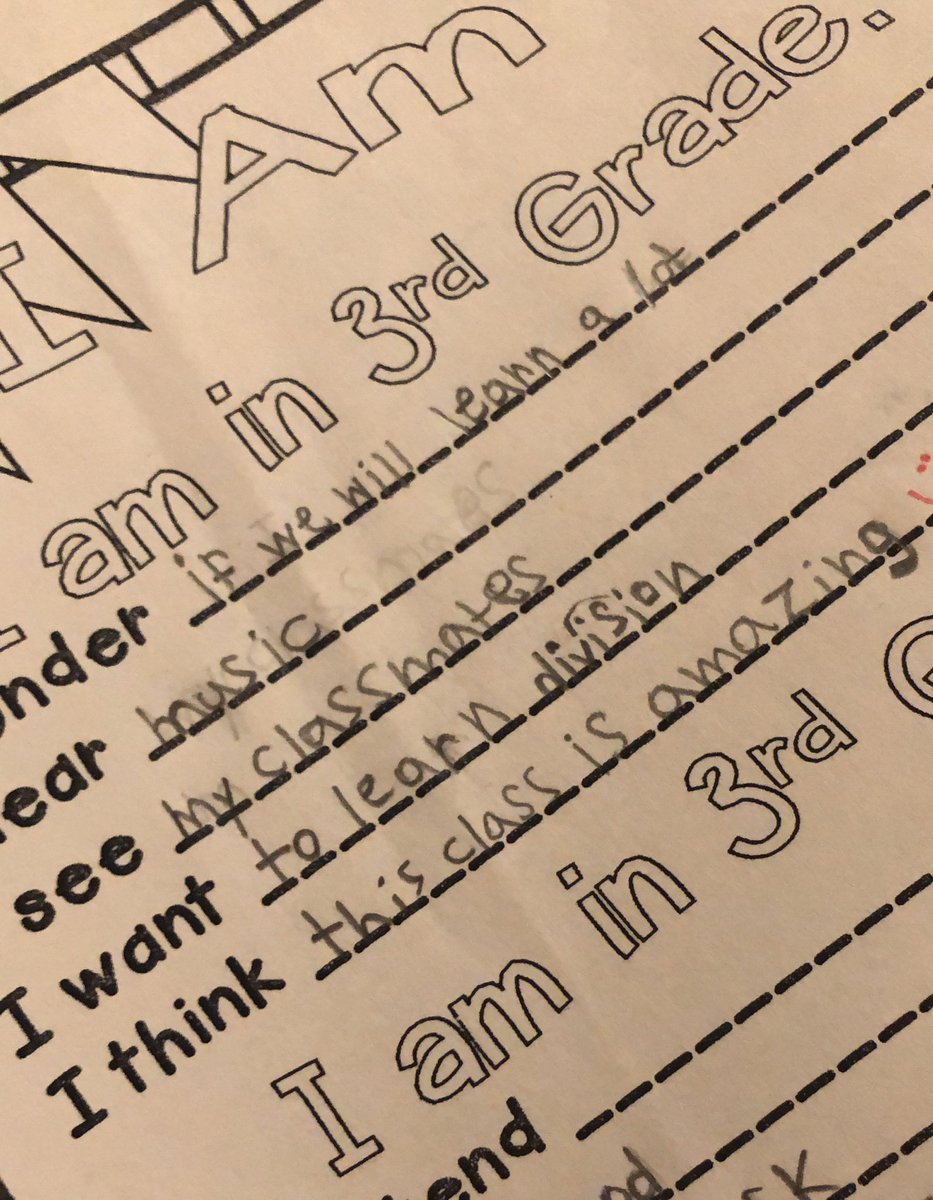 I Am
I am in 3rd Grade.
onder if we will learn a lot
ear music
see my classmates
I want to learn division
I think this class is amazing
I am in 3rd G
end